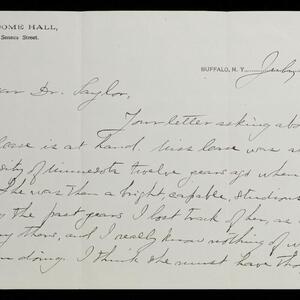 OME HALL,
Seneca Street.
BUFFALO, N. Y. July
ar Dr. Taylor,
Your letter asking abo
ease is at hand. Miss
sity of Minnesota twelve years ago when
She was then a bright capable, studious
the past years I lost track of her, as
them, and I really know nothing of w
doing. I think she must have tho